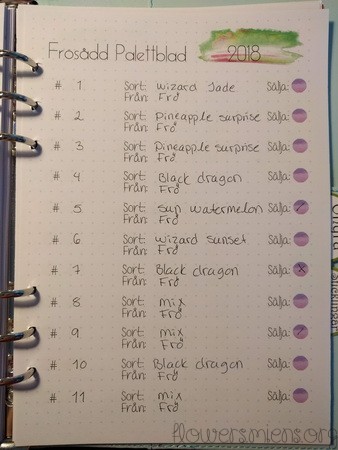 Frosådd Palettblad 2018
# 1 Sort: Wizard Jade Sälja:
Från: Frö
# 2 Sort: Pineapple surprise Sälja:
Från: Frö
# 3 Sort: Pineapple surprise Sälja:
Från: Frö
# 4 Sort: Black dragon Sälja:
Från: Frö
# 5 Sort: Sun watermelon Sälja: /
Från: Frö
# 6 Sort: Wizard sunset Sälja:
Från: Frö
# 7 Sort: Black dragon Sälja: X
Från: Frö
# 8 Sort: Mix Sälja:
Från: Frö
# 9 Sort: Mix Sälja: /
Från: Frö
# 10 Sort: Black dragon Sälja:
Från: Frö
# 11 Sort: Mix Sälja:
Från: Frö
flowers.miens.org